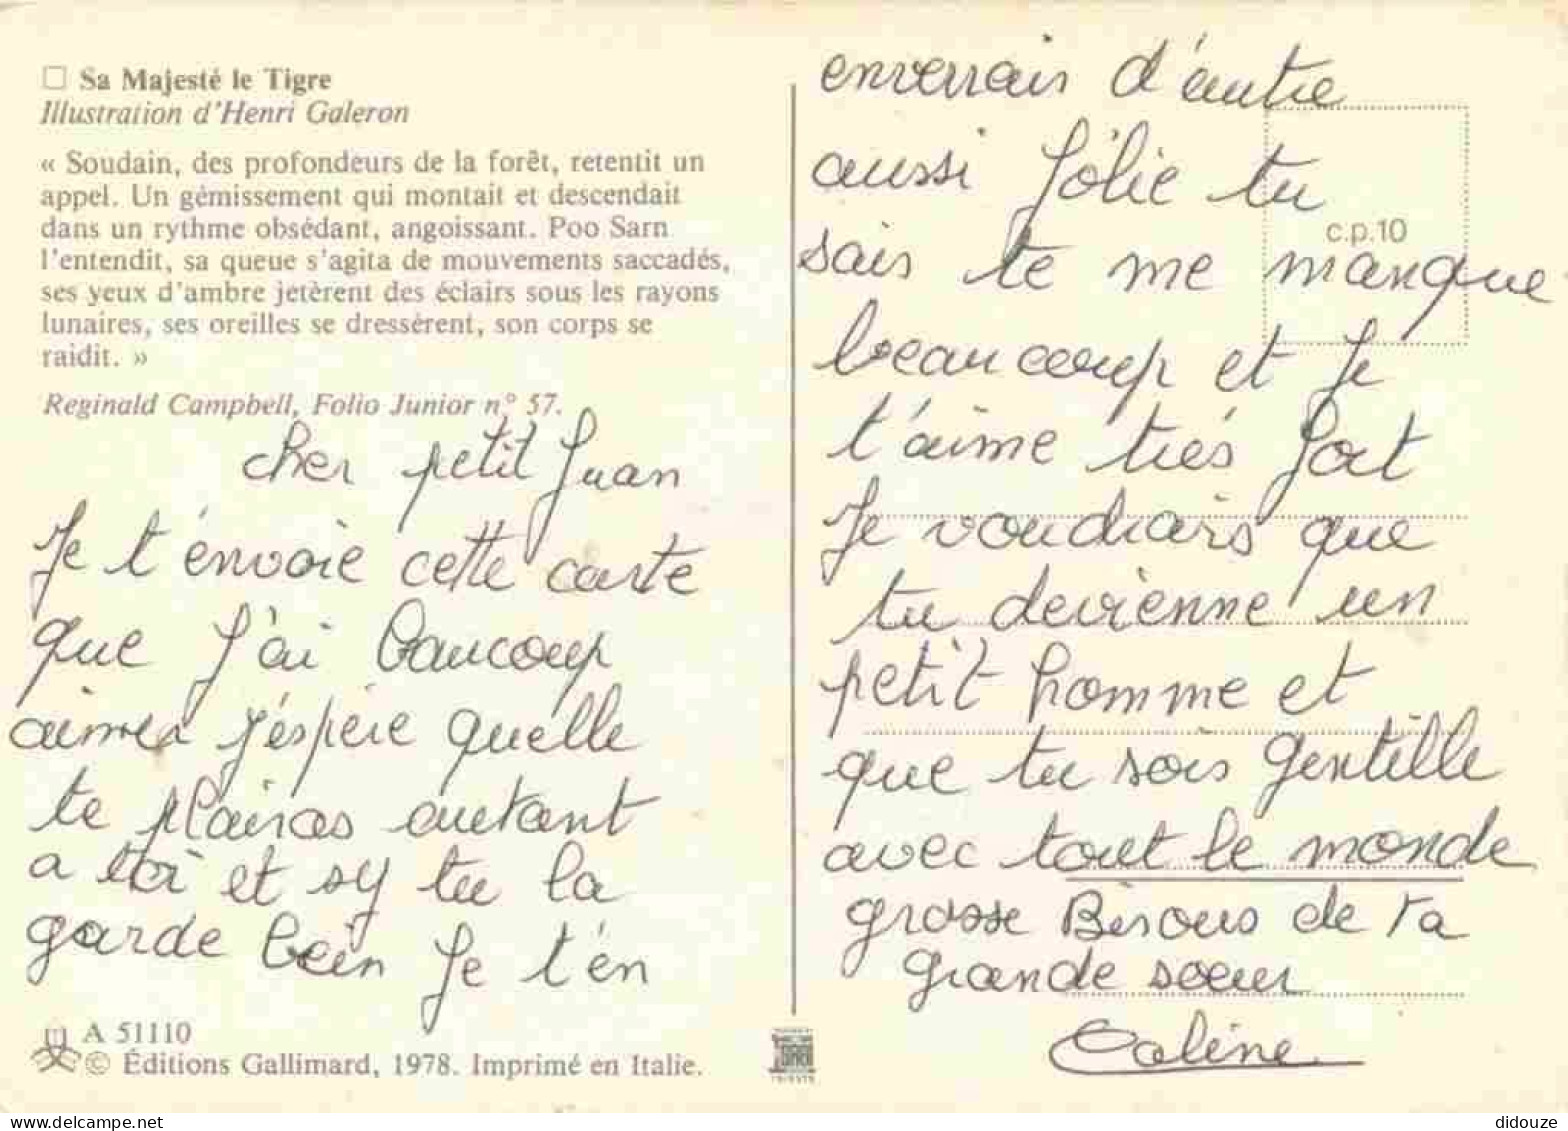 ☐ Sa Majesté le Tigre
Illustration d'Henri Galeron
« Soudain, des profondeurs de la forêt, retentit un
appel. Un gémissement qui montait et descendait
dans un rythme obsédant, angoissant. Poo Sarn
l'entendit, sa queue s'agita de mouvements saccadés,
ses yeux d'ambre jetèrent des éclairs sous les rayons
lunaires, ses oreilles se dressèrent, son corps se
raidit. »
Reginald Campbell, Folio Junior n° 57.
cher petit Juan
Je t'envoie cette carte
que j'ai baucoup
aimer j'éspère quelle
te plairas autant
a toi et sy tu la
garde bein Je t'én
A 51110
© Éditions Gallimard, 1978. Imprimé en Italie.
enverrais d'autre
aussi jolie tu
sais te me manque
c.p.10
beaucoup et Je
t'aime trés fort
Je voudrais que
tu devienne un
petit homme et
que tu sois gentille
avec tout le monde
grosse Bisous de ta
grande soeur
Coline
didouze